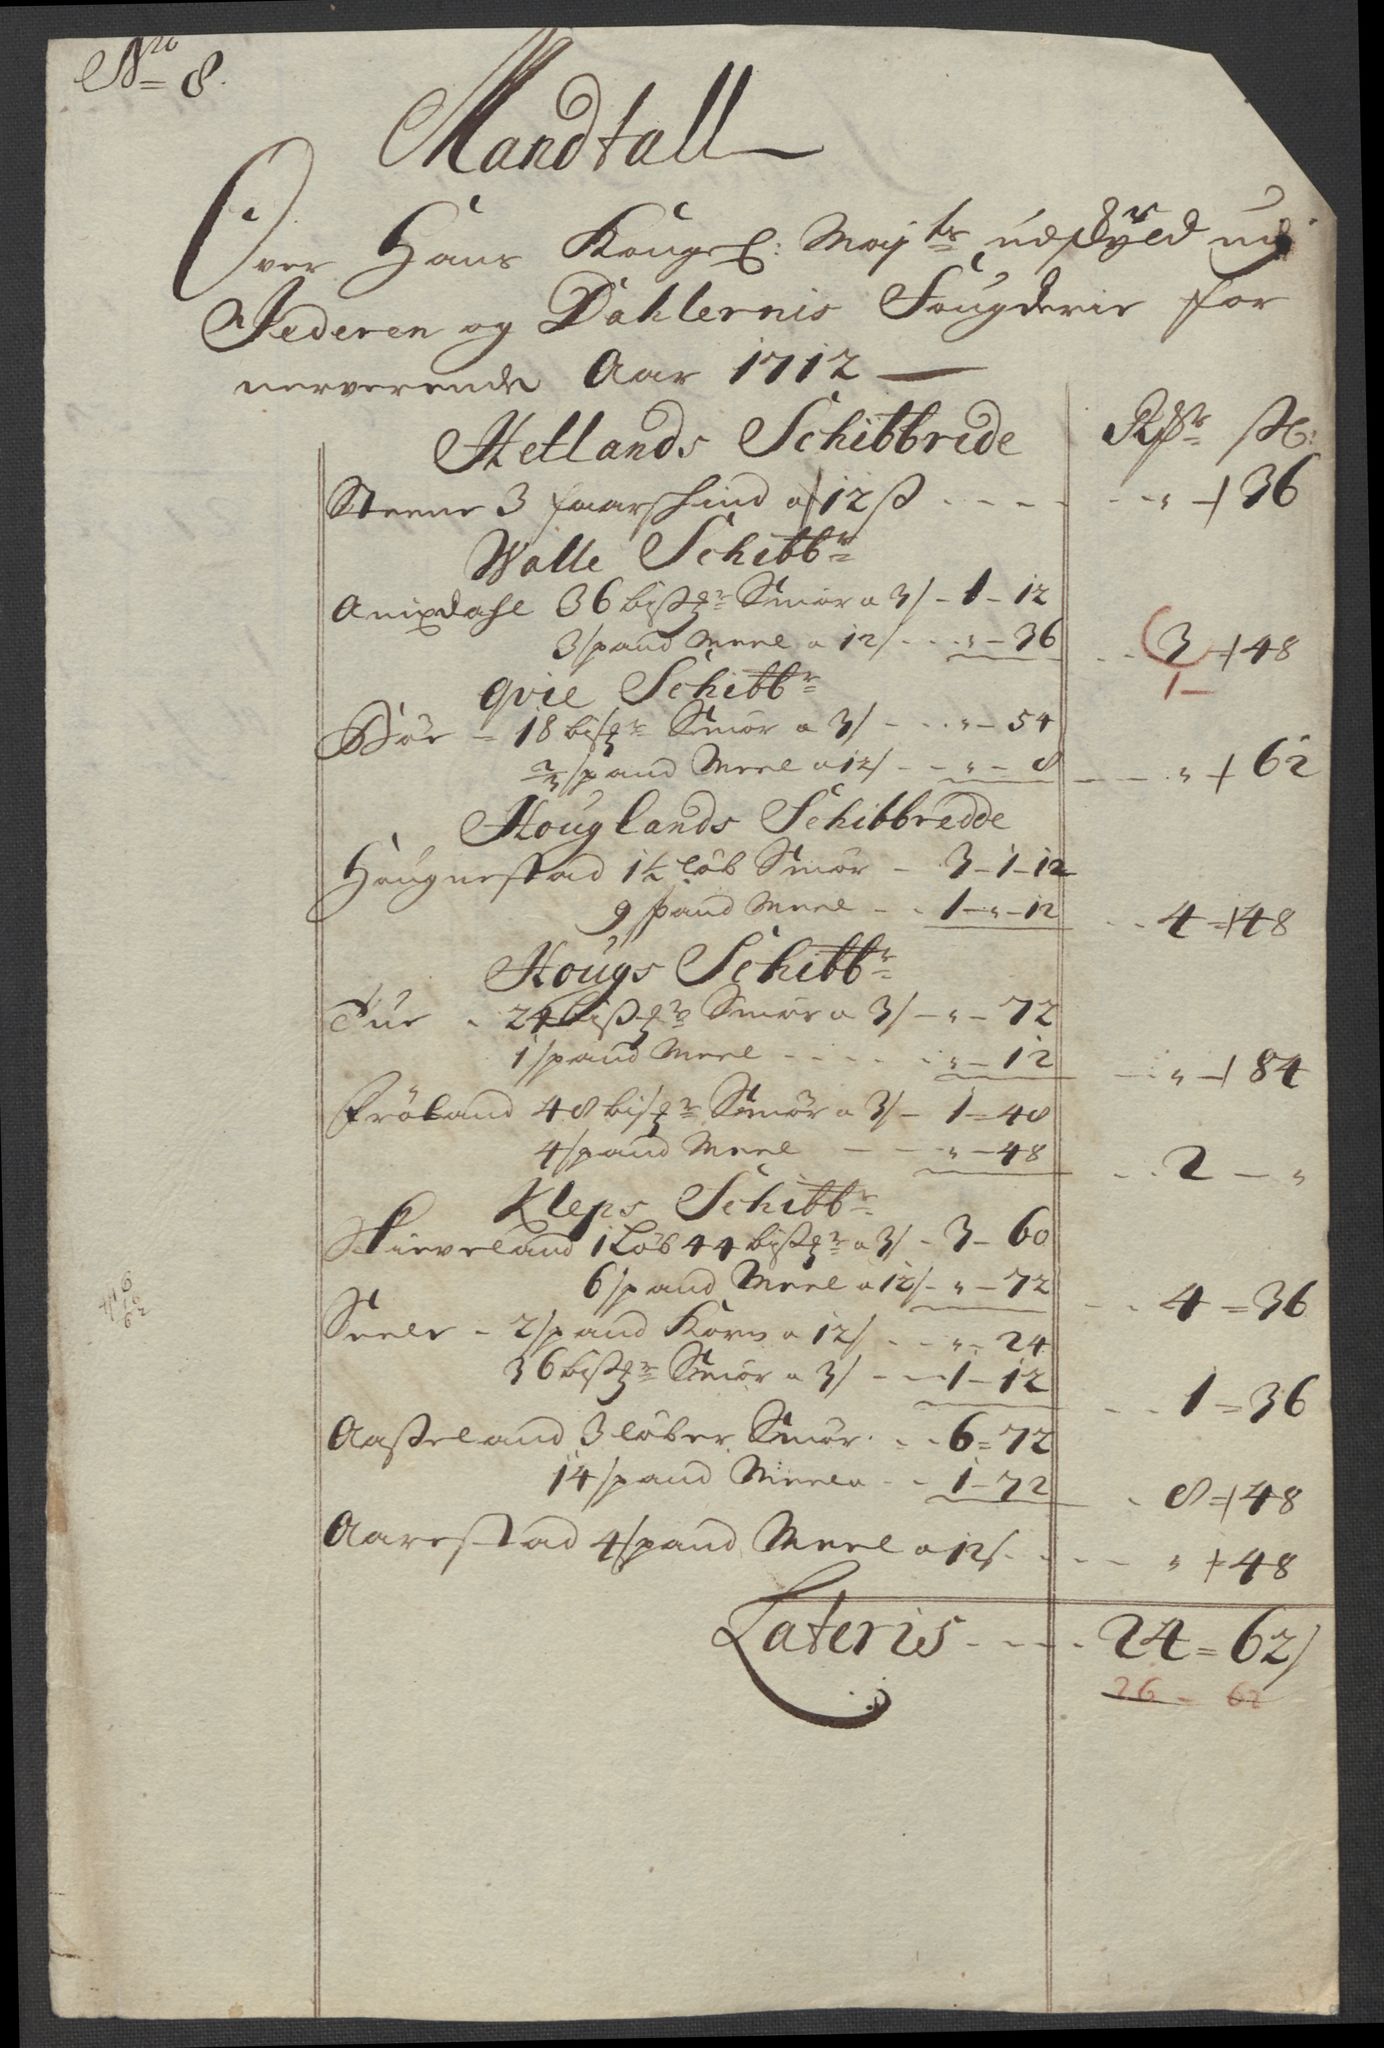 No 8.
Mandtall
Over Hans Kongel: Mayts udskyld udj
Jederen og Dahlernis Fougderie for
nerverende Aar 1712
Hetlands Schibbrede Rdr ß:
Steene 3 faarschind a 12 ß - - - - - - " - 36
Walle Schibbr
Anixdahl 36 bispr Smør a 3/ - 1 - 12
3 spand Meel a 12/ - - " - 36 - - 3 - 48
1 -
Qvie Schibbr
Bøe - 18 bispr Smør a 3/ - - " - 54
2/3 spand Meel a 12/ - - " - 8 - - " - 62
Houglands Schibbredde
Haugnestad 1½ løb Smør - 3 - 1 - 12
9 spand Meel - - 1 - " - 12 - - 4 = 48
Hougs Schibbr
Tue - 24 bispr Smør a 3/ - " - 72
1 spand Meel - - - - " - 12 - " - 84
Frøland 48 bispr Smør a 3/ - 1 - 48
4 spand Meel - - " - 48 - - 2 - "
Kleps Schibbr
Skieveland 1 Løb 44 bispr a 3/ - 3 - 60
6 spand Meel a 12/ - " - 72 - - 4 = 36
Seele - 2 spand Korn a 12/ - - " - 24
36 bispr Smør a 3/ - - 1 - 12 - - 1 = 36
Aasseland 3 løber Smør - - 6 = 72
14 spand Meel - - 1 - 72 - 8 = 48
Aarestad 4 spand Meel a 12/ - - - - " - 48
Lateris - - - - 24 = 62/
26 - 62